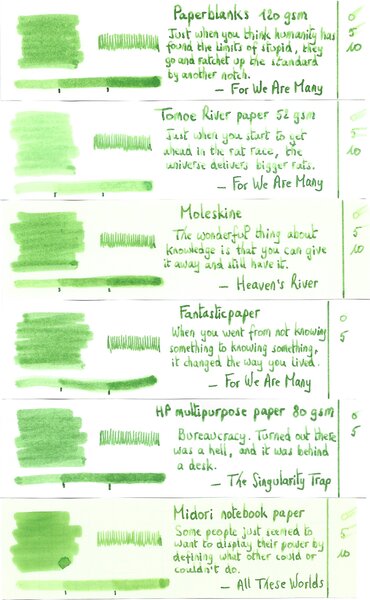 Paperblanks 120 gsm
Just when you think humanity has
found the limits of stupid, they
go and ratchet up the standard
by another notch.
— For We Are Many
0
5
10
Tomoe River paper 52 gsm
Just when you start to get
ahead in the rat race, the
universe delivers bigger rats.
— For We Are Many
0
5
10
Moleskine
The wonderful thing about
knowledge is that you can give
it away and still have it.
— Heaven's River
0
5
10
Fantasticpaper
When you went from not knowing
something to knowing something,
it changed the way you lived.
— For We Are Many
0
5
HP multipurpose paper 80 gsm
Bureaucracy. Turned out there
was a hell, and it was behind
a desk.
— The Singularity Trap
0
5
Midori notebook paper
Some people just seemed to
want to display their power by
defining what other could or
couldn't do.
— All These Worlds
0
5
10